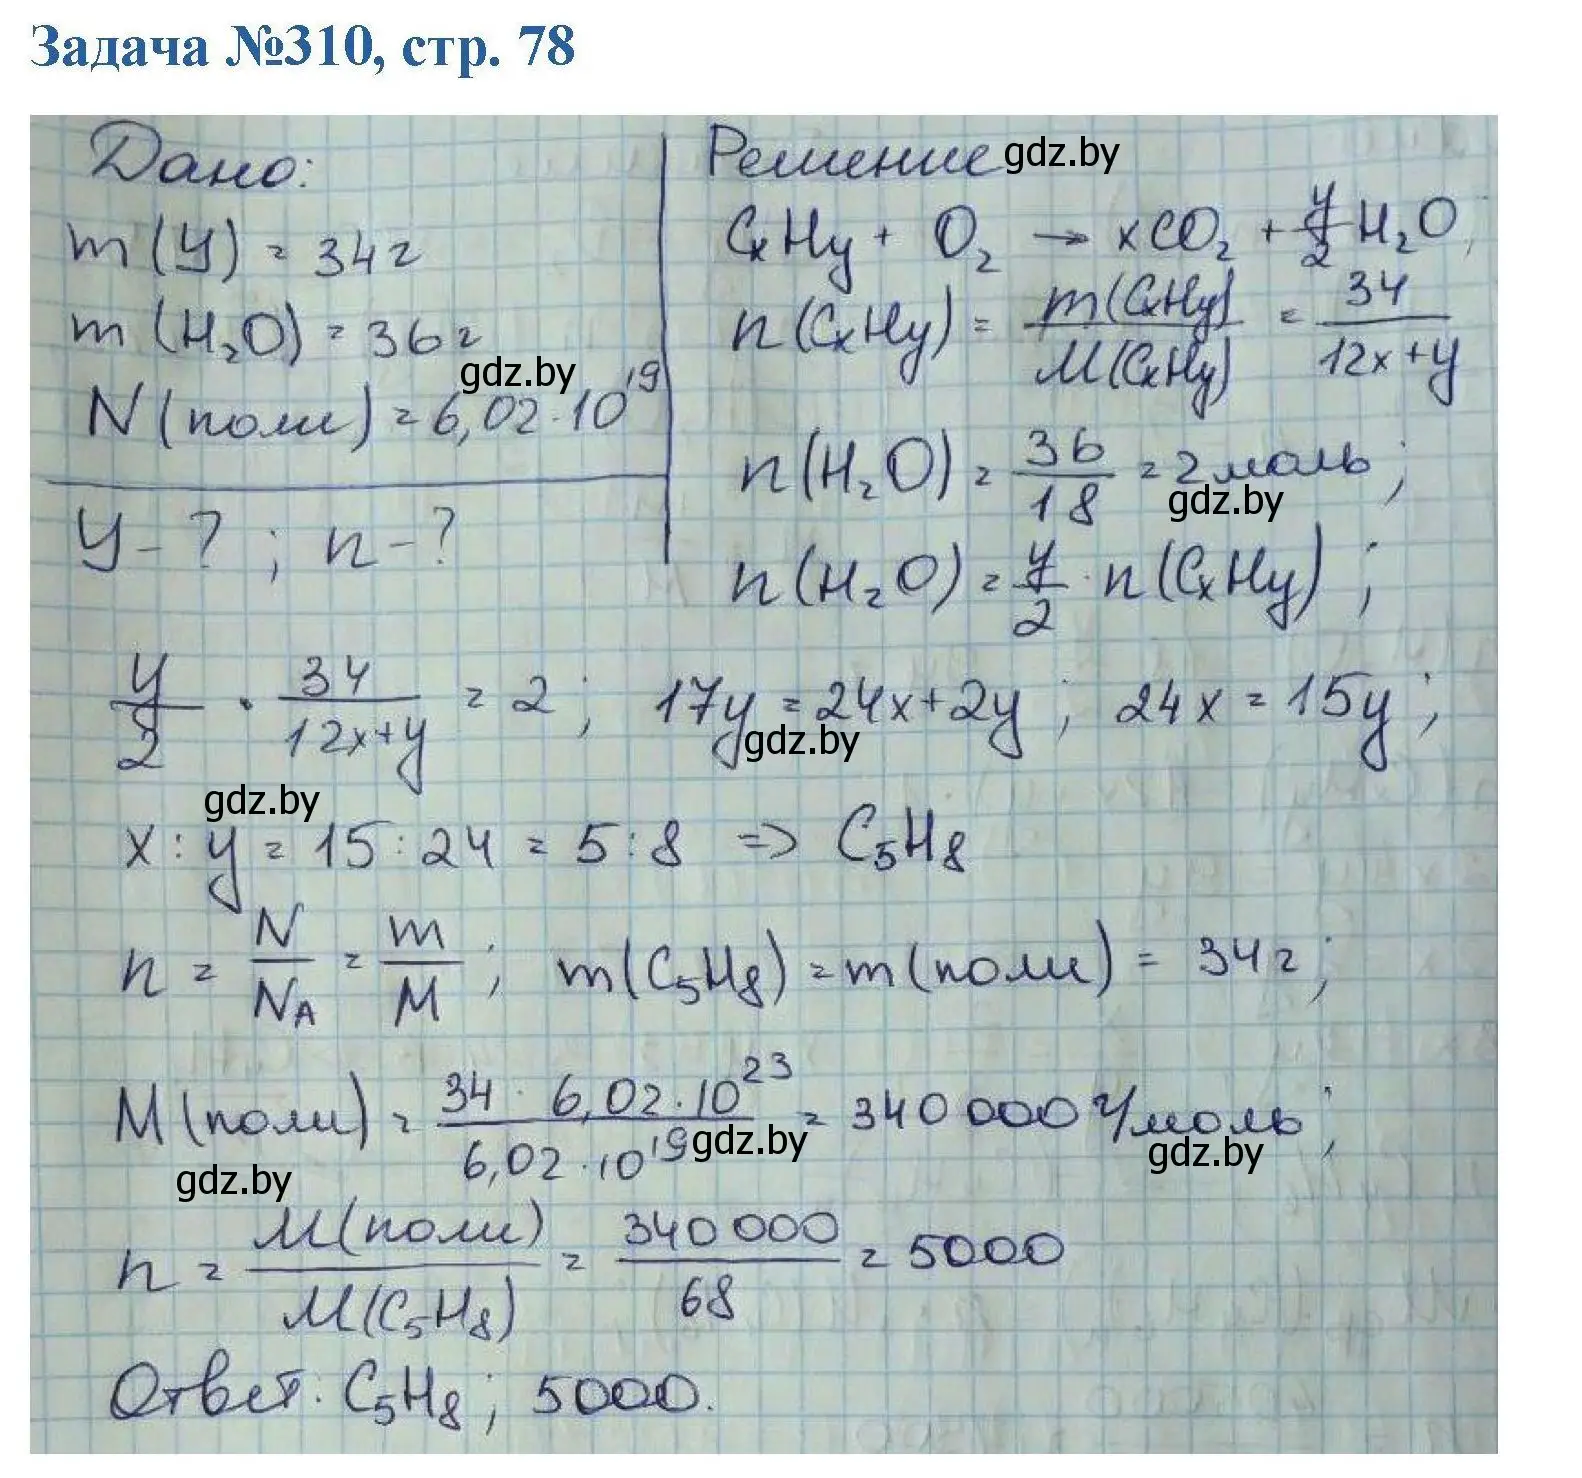 Задача №310, стр. 78
Дано:
m(У) = 34г
m(H₂O) = 36г
gdz.by
N(поли) = 6,02·10¹⁹
У-? ; n-?
Решение gdz.by
CxHy + O₂ → xCO₂ + y/2 H₂O;
n(CxHy) = m(CxHy)/M(CxHy) = 34/(12x+y)
n(H₂O) = 36/18 = 2моль;
gdz.by
n(H₂O) = y/2 · n(CxHy) ;
y/2 · 34/(12x+y) = 2 ; 17y = 24x+2y ; 24x = 15y ;
gdz.by
gdz.by
x : y = 15 : 24 = 5 : 8 => C₅H₈
n = N/N_A = m/M ; m(C₅H₈) = m(поли) = 34г;
M(поли) = (34 · 6,02·10²³)/(6,02·10¹⁹) = 340 000 г/моль ;
gdz.by
gdz.by
gdz.by
n = M(поли)/M(C₅H₈) = 340 000/68 = 5000
Ответ: C₅H₈ ; 5000.